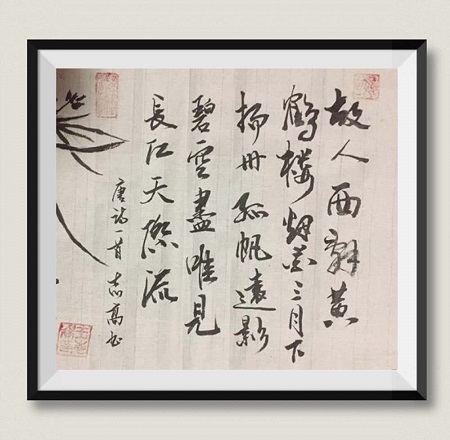 故人西辭黃
鶴樓烟花三月下
揚州孤帆遠影
碧雲盡唯見
長江天際流
唐詩一首 志高書